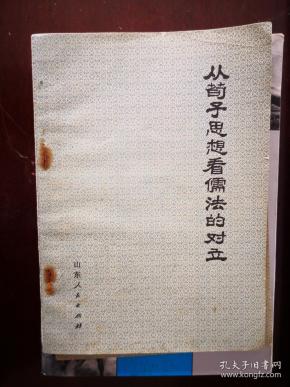 从荀子思想看儒法的对立
山东人民出版社
孔夫子旧书网